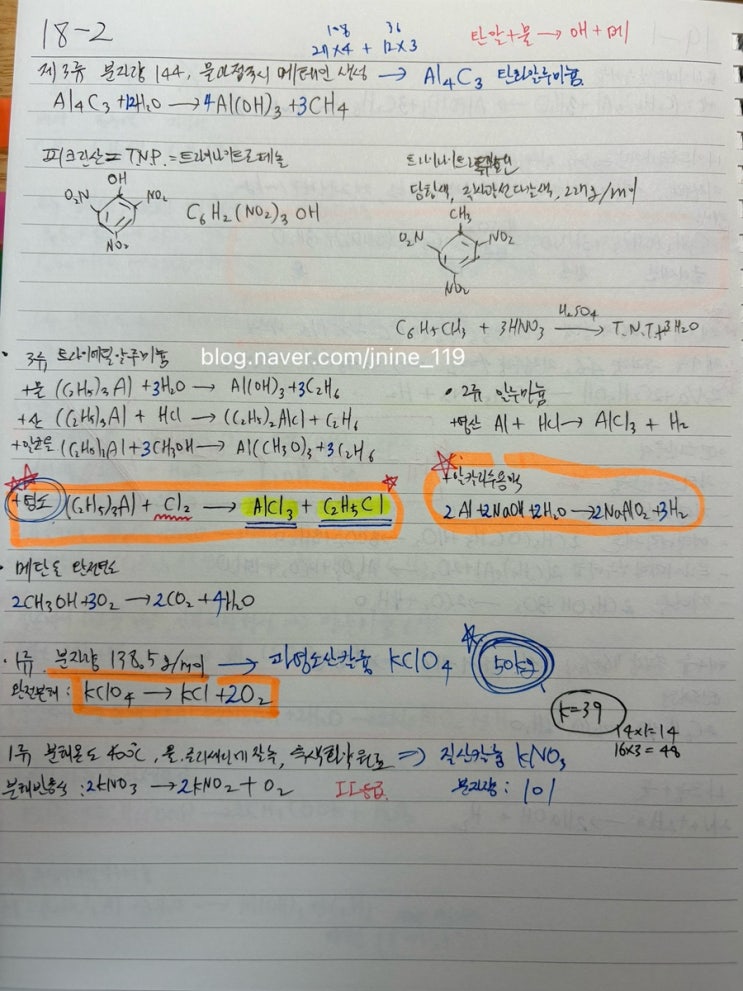 18-2
108 36
27×4 + 12×3
탄알+물 → 애 + 메
제3류 분자량 144, 물과접촉시 메테인 생성 → Al4C3 탄화알루미늄
Al4C3 + 12H2O → 4Al(OH)3 + 3CH4
피크린산 = T.N.P. = 트리니트로페놀
OH
O2N NO2
NO2
C6H2(NO2)3 OH
트리니트로톨루엔
담황색, 직사광선 다갈색, 227g/mol
CH3
O2N NO2
NO2
C6H5CH3 + 3HNO3 → T.N.T + 3H2O
H2SO4
· 3류 트라이에틸알루미늄
blog.naver.com/jnine_119
+물 (C2H5)3Al + 3H2O → Al(OH)3 + 3C2H6
+산 (C2H5)3Al + HCl → (C2H5)2AlCl + C2H6
+알코올 (C2H5)3Al + 3CH3OH → Al(CH3O)3 + 3C2H6
+염소 (C2H5)3Al + Cl2 → AlCl3 + C2H5Cl
· 2류 알루미늄
+염산 Al + HCl → AlCl3 + H2
+알칼리수용액
2Al + 2NaOH + 2H2O → 2NaAlO2 + 3H2
· 메탄올 완전연소
2CH3OH + 3O2 → 2CO2 + 4H2O
· 1류 분자량 138.5g/mol → 과염소산칼륨 KClO4 50kg
완전분해 : KClO4 → KCl + 2O2
K=39
14×1=14
16×3=48
1류 분해온도 400℃, 물.글리세린에 잘녹, 흑색화약원료 ⇒ 질산칼륨 KNO3
분해반응식 : 2KNO3 → 2KNO2 + O2 II등급 분자량 : 101